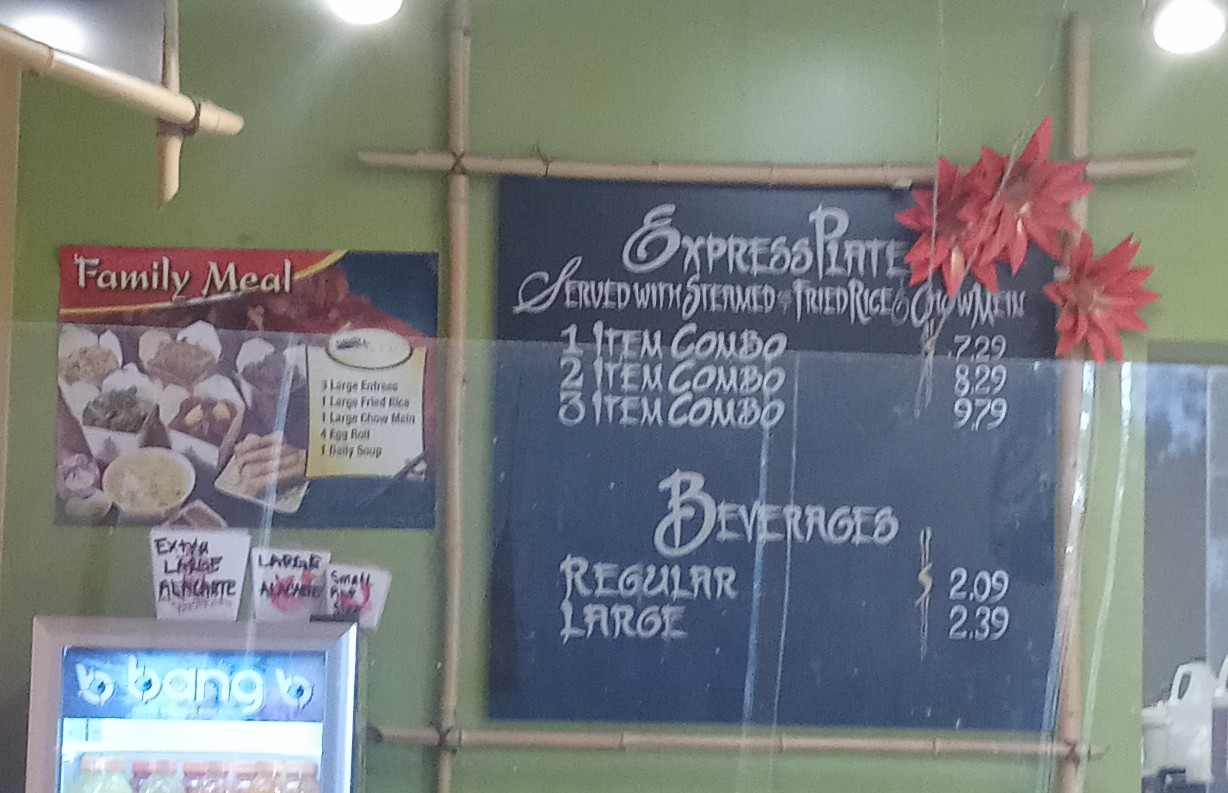 Family Meal
3 Large Entrees
1 Large Fried Rice
1 Large Chow Mein
4 Egg Roll
1 Daily Soup
EXPRESS PLATE
SERVED WITH STEAMED or FRIED RICE & CHOW MEIN
1 ITEM COMBO 7.29
2 ITEM COMBO 8.29
3 ITEM COMBO 9.79
BEVERAGES
REGULAR $ 2.09
LARGE 2.39
EXTRA
LARGE
ALACARTE
LARGE
ALACARTE
Small
bang